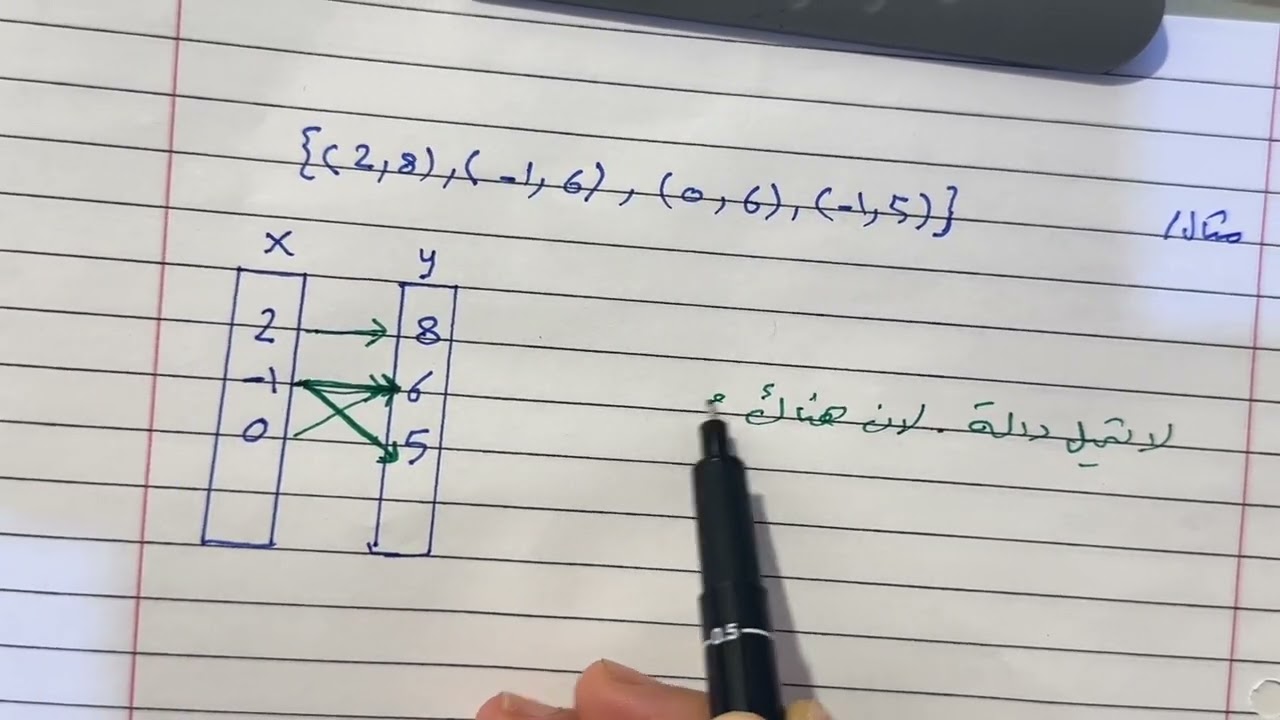 {(2,8),(-1,6),(0,6),(-1,5)}
مثال/
x y
2 8
-1 6
0 5
لا تمثل دالة . لان هناك
0.5